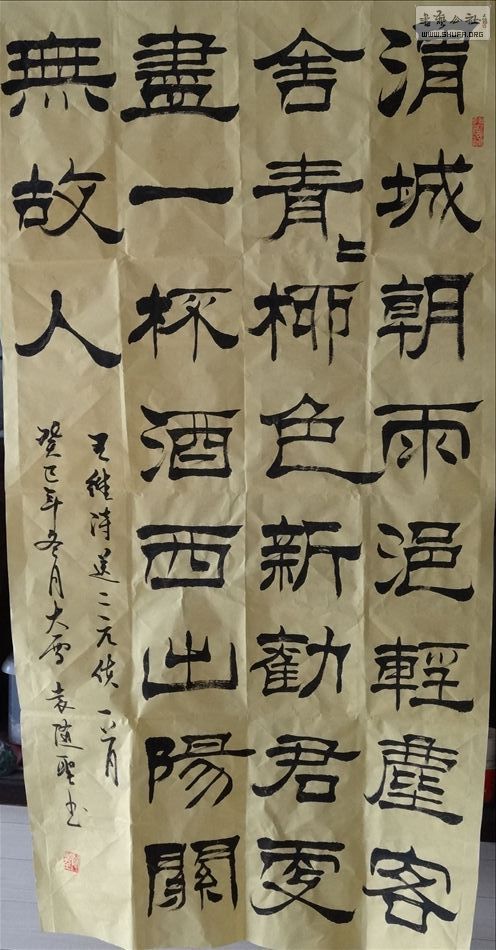 渭城朝雨浥輕塵客
舍青〻柳色新勸君更
盡一杯酒西出陽關
無故人
王維詩送二元使一首
癸巳年冬月大雪 袁隨聖书
书艺公社
WWW.SHUFA.ORG